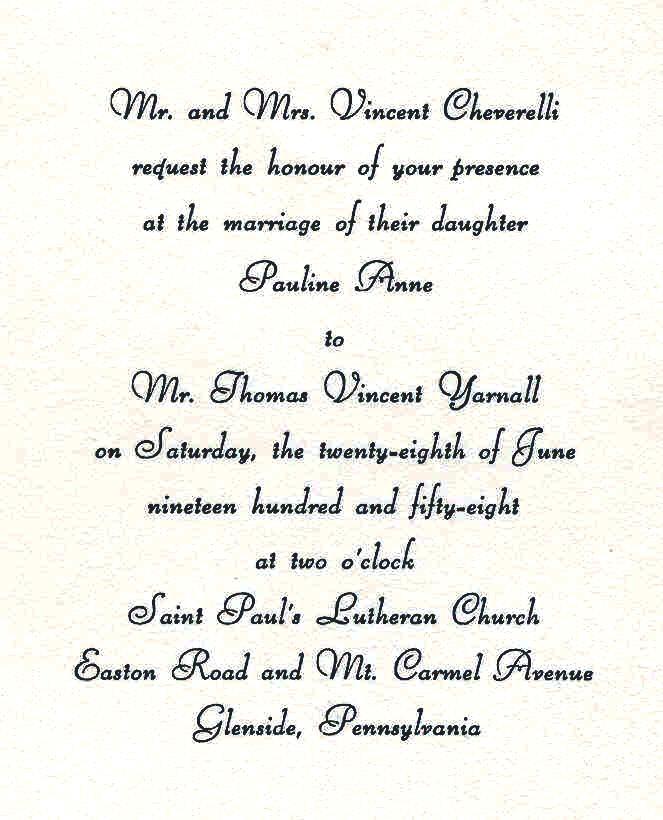 Mr. and Mrs. Vincent Cheverelli
request the honour of your presence
at the marriage of their daughter
Pauline Anne
to
Mr. Thomas Vincent Yarnall
on Saturday, the twenty-eighth of June
nineteen hundred and fifty-eight
at two o'clock
Saint Paul's Lutheran Church
Easton Road and Mt. Carmel Avenue
Glenside, Pennsylvania